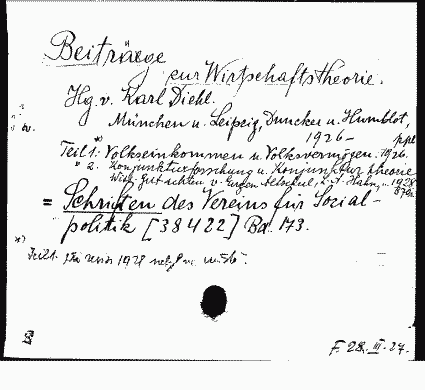 Beiträge
zur Wirtschaftstheorie.
Hg. v. Karl Diehl.
München u. Leipzig, Duncker u. Humblot,
1926-
Teil 1.*) Volkseinkommen u. Volksvermögen. 1926.
" 2. Konjunkturforschung u. Konjunkturtheorie
Mit Gutachten v. Eugen Altschul, A. Hahn, 1928
= Schriften des Vereins für Sozial-
politik [38422] Bd. 173.
*) Teil 1.
F. 28. III. 27.